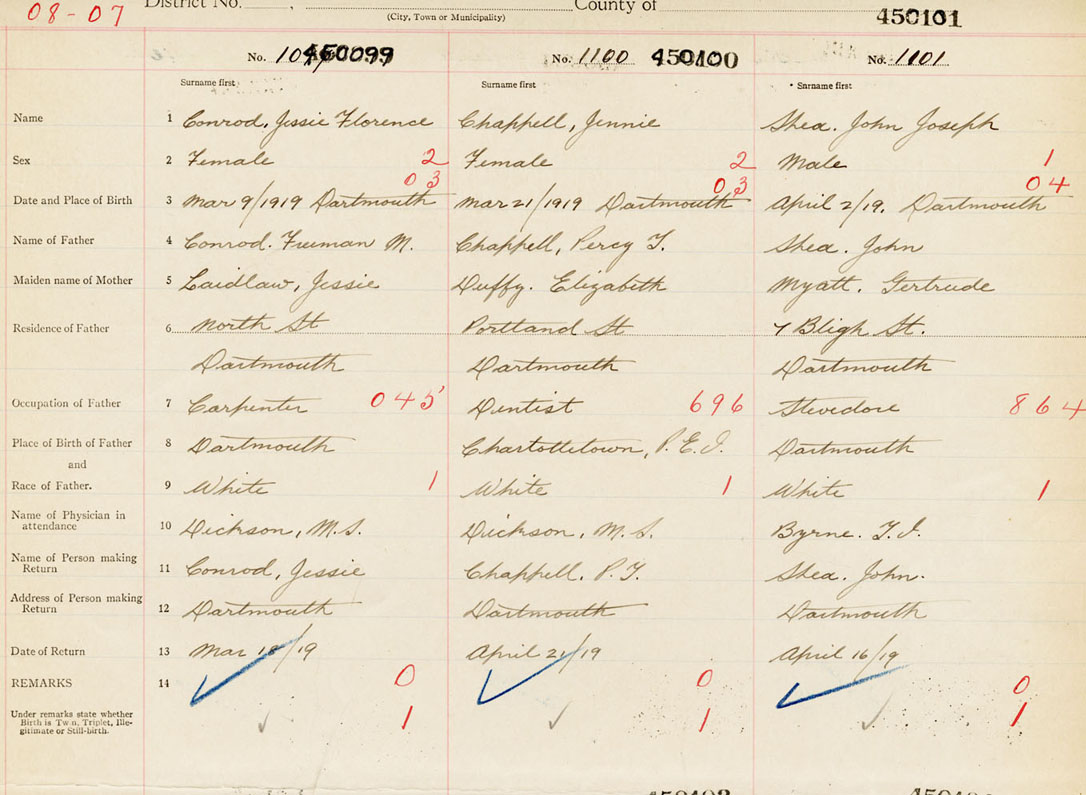 08-07 District No. , County of
(City, Town or Municipality) 450101
No. 450099 No. 1100 450100 No. 1101
Surname first Surname first Surname first
Name 1 Conrod, Jessie Florence Chappell, Jennie Shea. John Joseph
Sex 2 Female 2 Female 2 Male 1
03 03 04
Date and Place of Birth 3 Mar 9/1919 Dartmouth Mar 21/1919 Dartmouth April 2/19. Dartmouth
Name of Father 4 Conrod. Freeman M. Chappell, Percy T. Shea. John
Maiden name of Mother 5 Laidlaw, Jessie Duffy. Elizabeth Myatt. Gertrude
Residence of Father 6 North St Portland St 7 Bligh St.
Dartmouth Dartmouth Dartmouth
Occupation of Father 7 Carpenter 045 Dentist 696 Stevedore 864
Place of Birth of Father 8 Dartmouth Charlottetown, P.E.I. Dartmouth
and
Race of Father. 9 White 1 White 1 White 1
Name of Physician in
attendance 10 Dickson, M.S. Dickson, M.S. Byrne. T.I.
Name of Person making
Return 11 Conrod, Jessie Chappell. P.T. Shea. John.
Address of Person making
Return 12 Dartmouth Dartmouth Dartmouth
Date of Return 13 Mar 18/19 April 21/19 April 16/19
REMARKS 14 0 0 0
Under remarks state whether
Birth is Twin, Triplet, Ille-
gitimate or Still-birth. 1 1 1